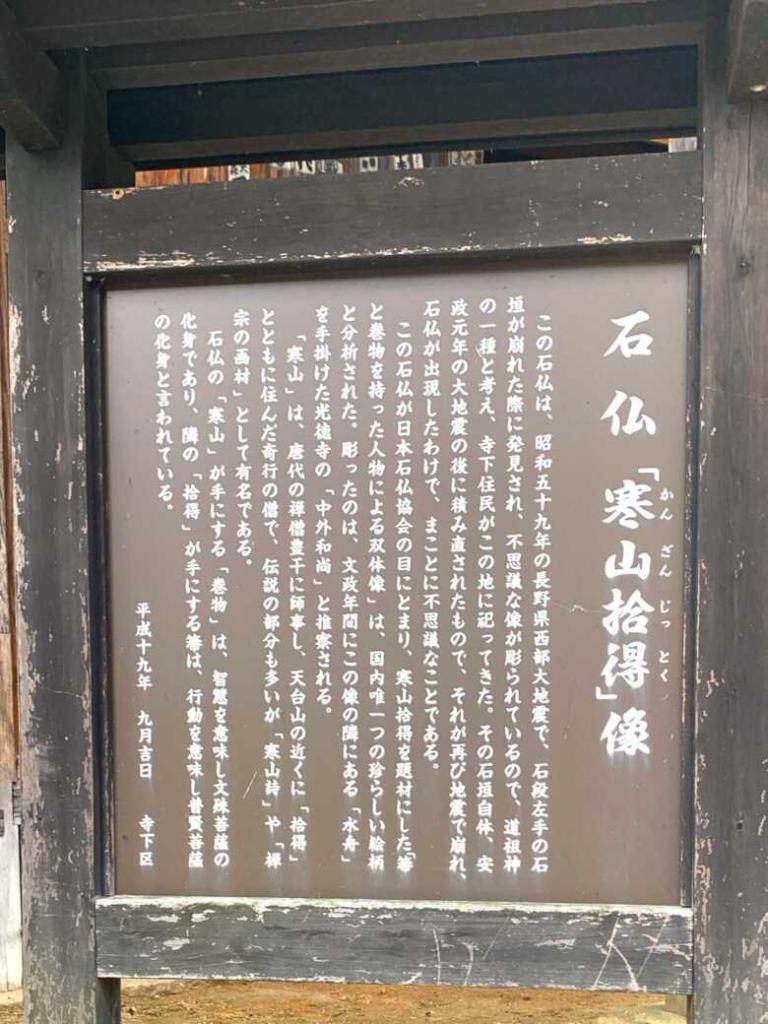 石仏「寒山拾得」像
かんざんじっとく
この石仏は、昭和五十九年の長野県西部大地震で、石段左手の石
垣が崩れた際に発見され、不思議な像が彫られているので、道祖神
の一種と考え、寺下住民がこの地に祀ってきた。その石垣自体、安
政元年の大地震の後に積み直されたもので、それが再び地震で崩れ、
石仏が出現したわけで、まことに不思議なことである。
この石仏が日本石仏協会の目にとまり、寒山拾得を題材にした「箒
と巻物を持った人物による双体像」は、国内唯一つの珍らしい絵柄
と分析された。彫ったのは、文政年間にこの像の隣にある「水舟」
を手掛けた光徳寺の「中外和尚」と推察される。
「寒山」は、唐代の禅僧豊干に師事し、天台山の近くに「拾得」
とともに住んだ奇行の僧で、伝説の部分も多いが「寒山詩」や「禅
宗の画材」として有名である。
石仏の「寒山」が手にする「巻物」は、智慧を意味し文殊菩薩の
化身であり、隣の「拾得」が手にする箒は、行動を意味し普賢菩薩
の化身と言われている。
平成十九年 九月吉日 寺下区